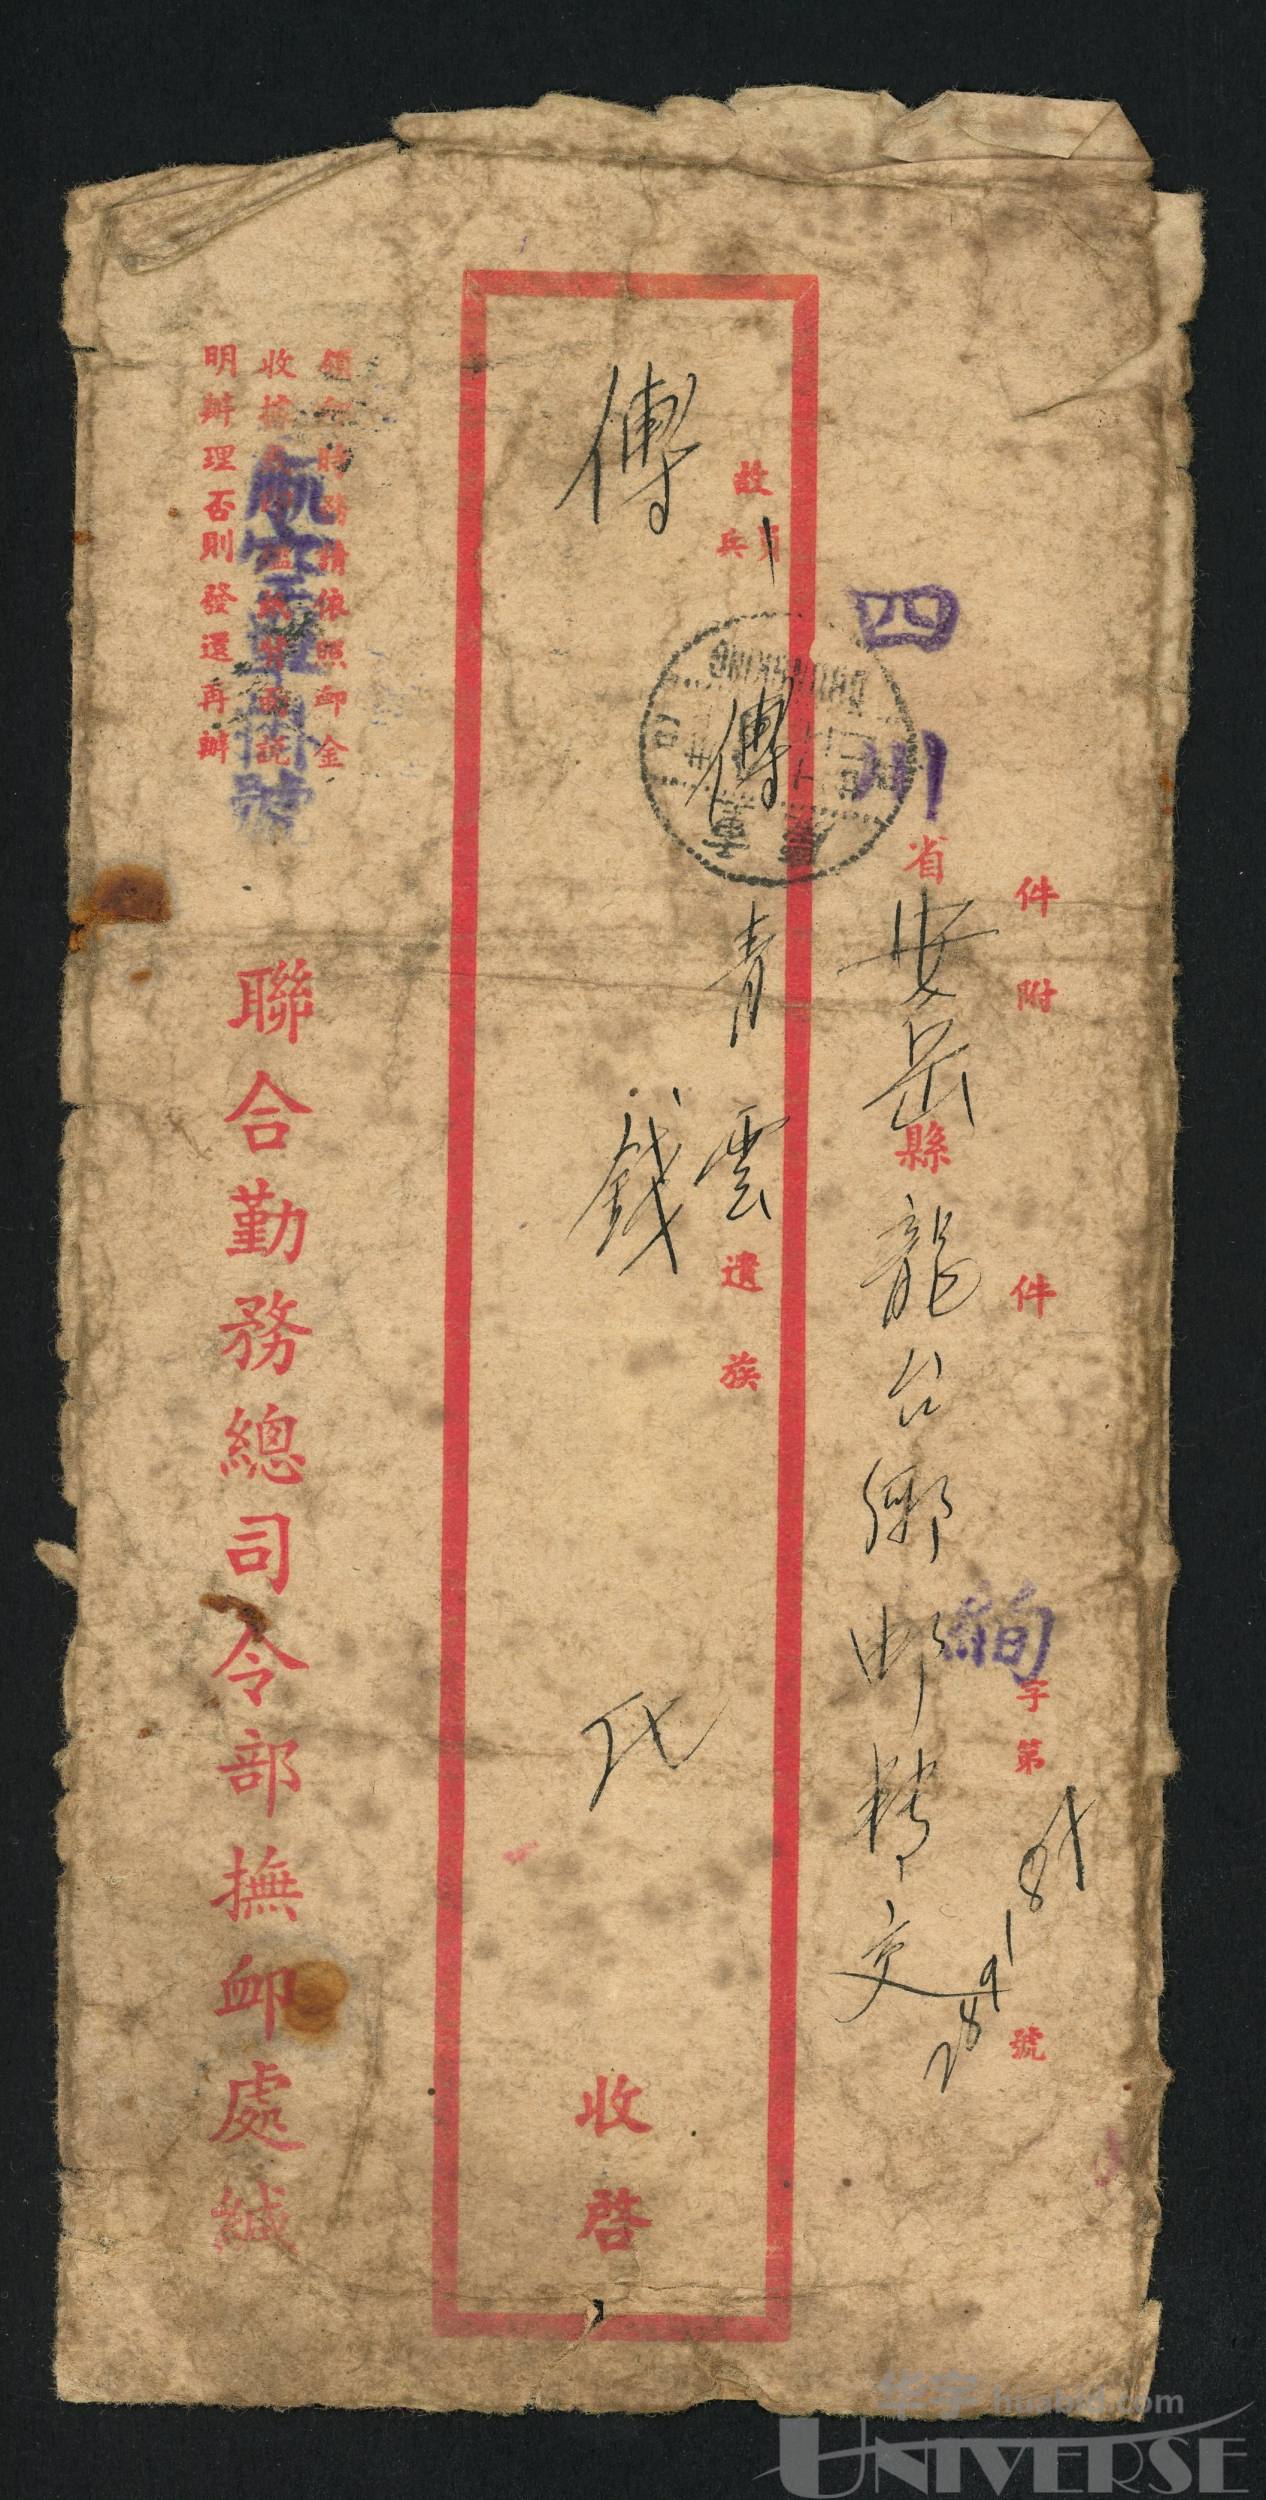 件附 件 字第 號
四川省安岳縣龍台鄉邮轉交
故 員兵 傅青雲遺族
傅錢氏 收啓
領卹時務請依照卹金
收據
明辦理否則發還再辦
航空雙掛號
聯合勤務總司令部撫卹處緘
CHUNGKING
重慶
华宇 huabid.com
UNIVERSE